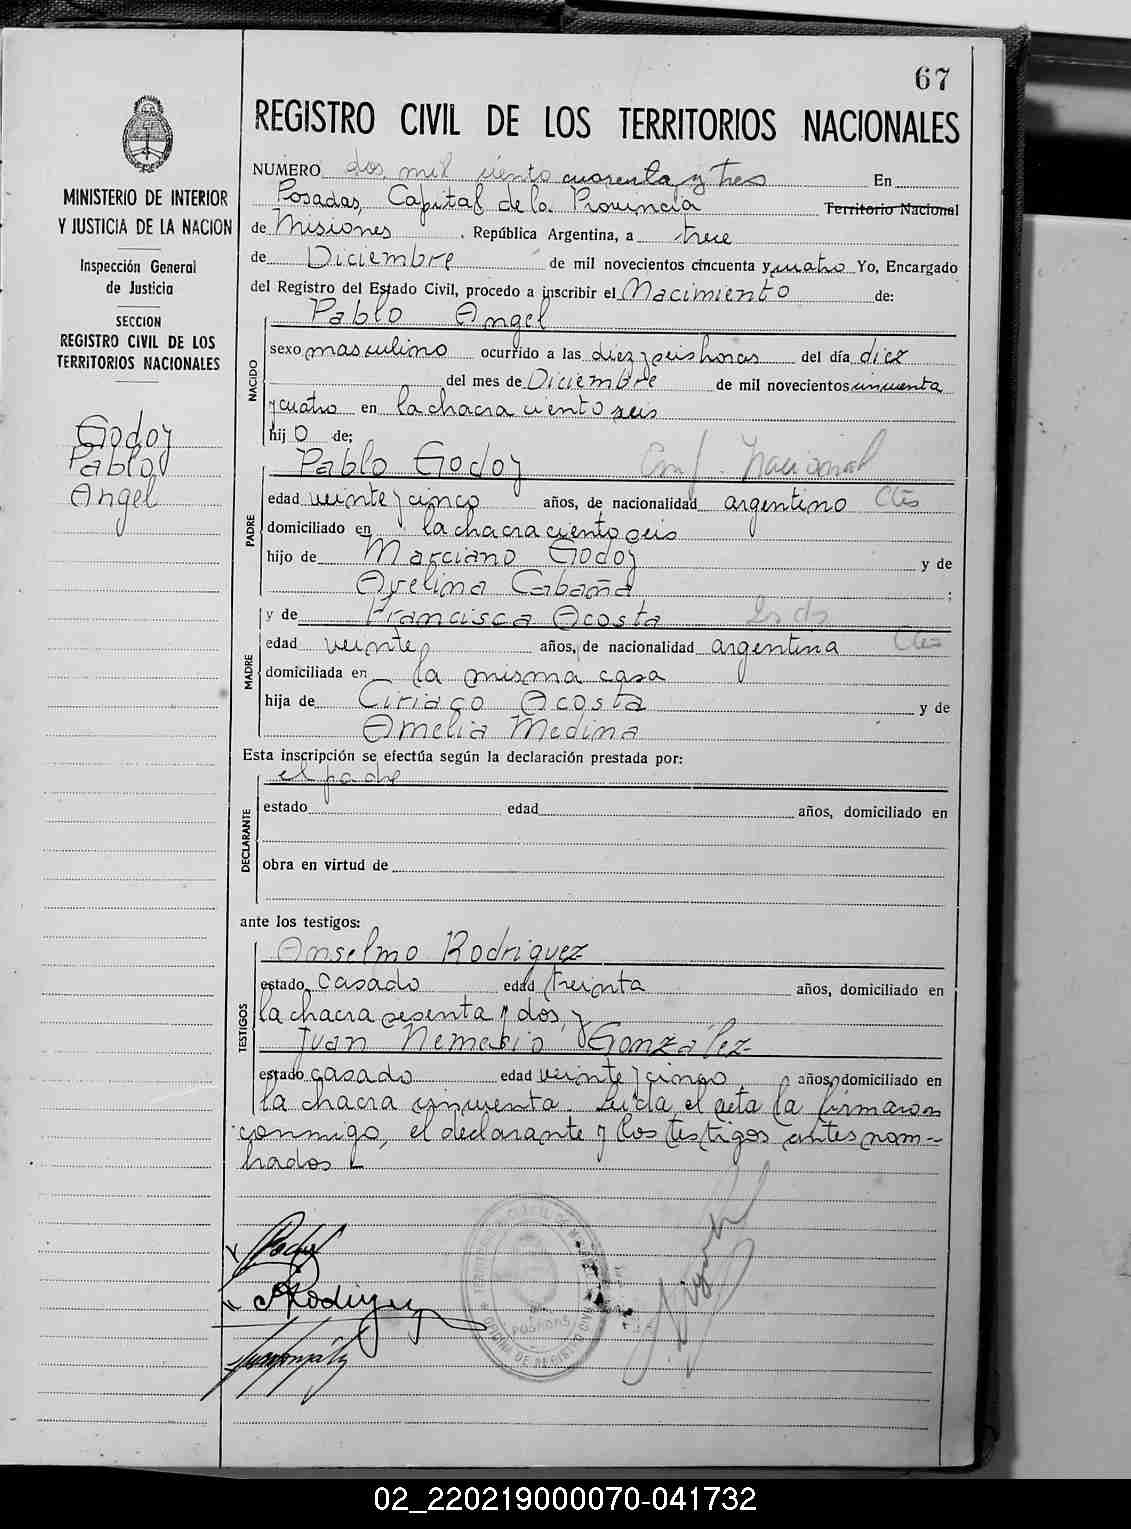 67
REGISTRO CIVIL DE LOS TERRITORIOS NACIONALES
MINISTERIO DE INTERIOR
Y JUSTICIA DE LA NACION
Inspección General
de Justicia
SECCION
REGISTRO CIVIL DE LOS
TERRITORIOS NACIONALES
Godoy
Pablo
Angel
NUMERO dos mil ciento cuarenta y tres En
Posadas, Capital de la Provincia Territorio Nacional
de Misiones, República Argentina, a trece
de Diciembre de mil novecientos cincuenta y cuatro Yo, Encargado
del Registro del Estado Civil, procedo a inscribir el Nacimiento de:
Pablo Angel
NACIDO
sexo masculino ocurrido a las diez y seis horas del día diez
del mes de Diciembre de mil novecientos cincuenta
y cuatro en la chacra ciento seis
hijo de;
Pablo Godoy Enf. Nacional
PADRE
edad veinte y cinco años, de nacionalidad argentino Ctes
domiciliado en la chacra ciento seis
hijo de Marciano Godoy y de
Avelina Cabaña ;
y de Francisca Acosta
MADRE
edad veinte años, de nacionalidad argentina Ctes
domiciliada en la misma casa
hija de Ciriaco Acosta y de
Amelia Medina
Esta inscripción se efectúa según la declaración prestada por:
el padre
DECLARANTE
estado edad años, domiciliado en
obra en virtud de
ante los testigos:
Anselmo Rodriguez
TESTIGOS
estado casado edad treinta años, domiciliado en
la chacra sesenta y dos, y
Juan Nemesio González
estado casado edad veinte y cinco años, domiciliado en
la chacra cincuenta. Leída el acta la firmaron
conmigo, el declarante y los testigos antes nom-
brados
ARodriguez
Juan González
POSADAS
OFICINA DE REGISTRO CIVIL
02_220219000070-041732